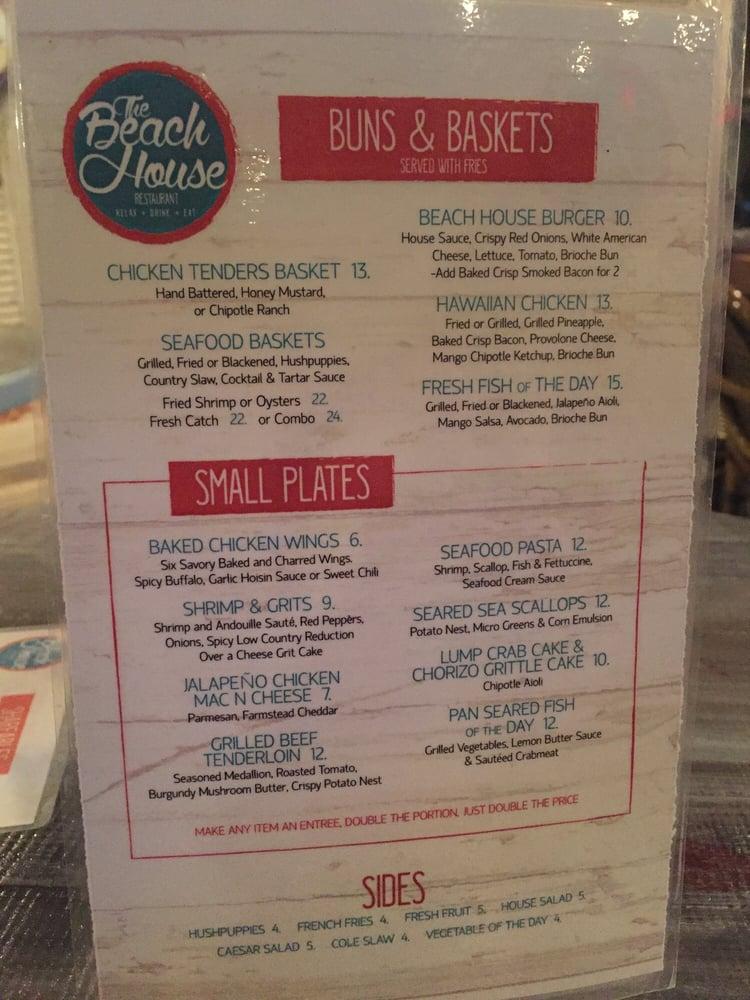 The
Beach
House
RESTAURANT
RELAX • DRINK • EAT
BUNS & BASKETS
SERVED WITH FRIES
CHICKEN TENDERS BASKET 13.
Hand Battered, Honey Mustard,
or Chipotle Ranch
SEAFOOD BASKETS
Grilled, Fried or Blackened, Hushpuppies,
Country Slaw, Cocktail & Tartar Sauce
Fried Shrimp or Oysters 22.
Fresh Catch 22. or Combo 24.
BEACH HOUSE BURGER 10.
House Sauce, Crispy Red Onions, White American
Cheese, Lettuce, Tomato, Brioche Bun
-Add Baked Crisp Smoked Bacon for 2
HAWAIIAN CHICKEN 13.
Fried or Grilled, Grilled Pineapple,
Baked Crisp Bacon, Provolone Cheese,
Mango Chipotle Ketchup, Brioche Bun
FRESH FISH OF THE DAY 15.
Grilled, Fried or Blackened, Jalapeño Aioli,
Mango Salsa, Avocado, Brioche Bun
SMALL PLATES
BAKED CHICKEN WINGS 6.
Six Savory Baked and Charred Wings.
Spicy Buffalo, Garlic Hoisin Sauce or Sweet Chili
SHRIMP & GRITS 9.
Shrimp and Andouille Sauté, Red Peppers,
Onions, Spicy Low Country Reduction
Over a Cheese Grit Cake
JALAPEÑO CHICKEN
MAC N CHEESE 7.
Parmesan, Farmstead Cheddar
GRILLED BEEF
TENDERLOIN 12.
Seasoned Medallion, Roasted Tomato,
Burgundy Mushroom Butter, Crispy Potato Nest
SEAFOOD PASTA 12.
Shrimp, Scallop, Fish & Fettuccine,
Seafood Cream Sauce
SEARED SEA SCALLOPS 12.
Potato Nest, Micro Greens & Corn Emulsion
LUMP CRAB CAKE &
CHORIZO GRITTLE CAKE 10.
Chipotle Aioli
PAN SEARED FISH
OF THE DAY 12.
Grilled Vegetables, Lemon Butter Sauce
& Sautéed Crabmeat
MAKE ANY ITEM AN ENTREE, DOUBLE THE PORTION, JUST DOUBLE THE PRICE
SIDES
HUSHPUPPIES 4. FRENCH FRIES 4. FRESH FRUIT 5. HOUSE SALAD 5.
CAESAR SALAD 5. COLE SLAW 4. VEGETABLE OF THE DAY 4.